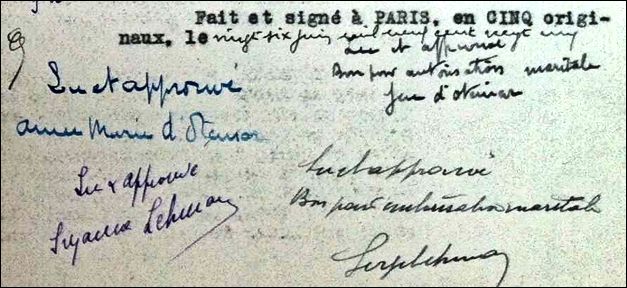 Fait et signé à PARIS, en CINQ origi-
naux, le vingt six juin mil neuf cent vingt un
Lu et approuvé
Bon pour autorisation maritale
Lu et approuvé
Marie
Lu & approuvé
Suzanne Lehman
Lu et approuvé
Bon pour autorisation maritale